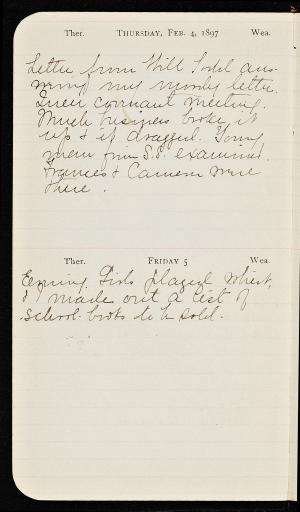 Ther. THURSDAY, FEB. 4, 1897 Wea.
Letter from Will Todd ans-
wering my monday letter.
covenant meeting.
Much business broke it
up & it dragged. Young
men from S.S. examined.
Frances & Cameron were
there.
Ther. FRIDAY 5 Wea.
Evening. Girls played whist,
& I made out a list of
school-books to be sold.